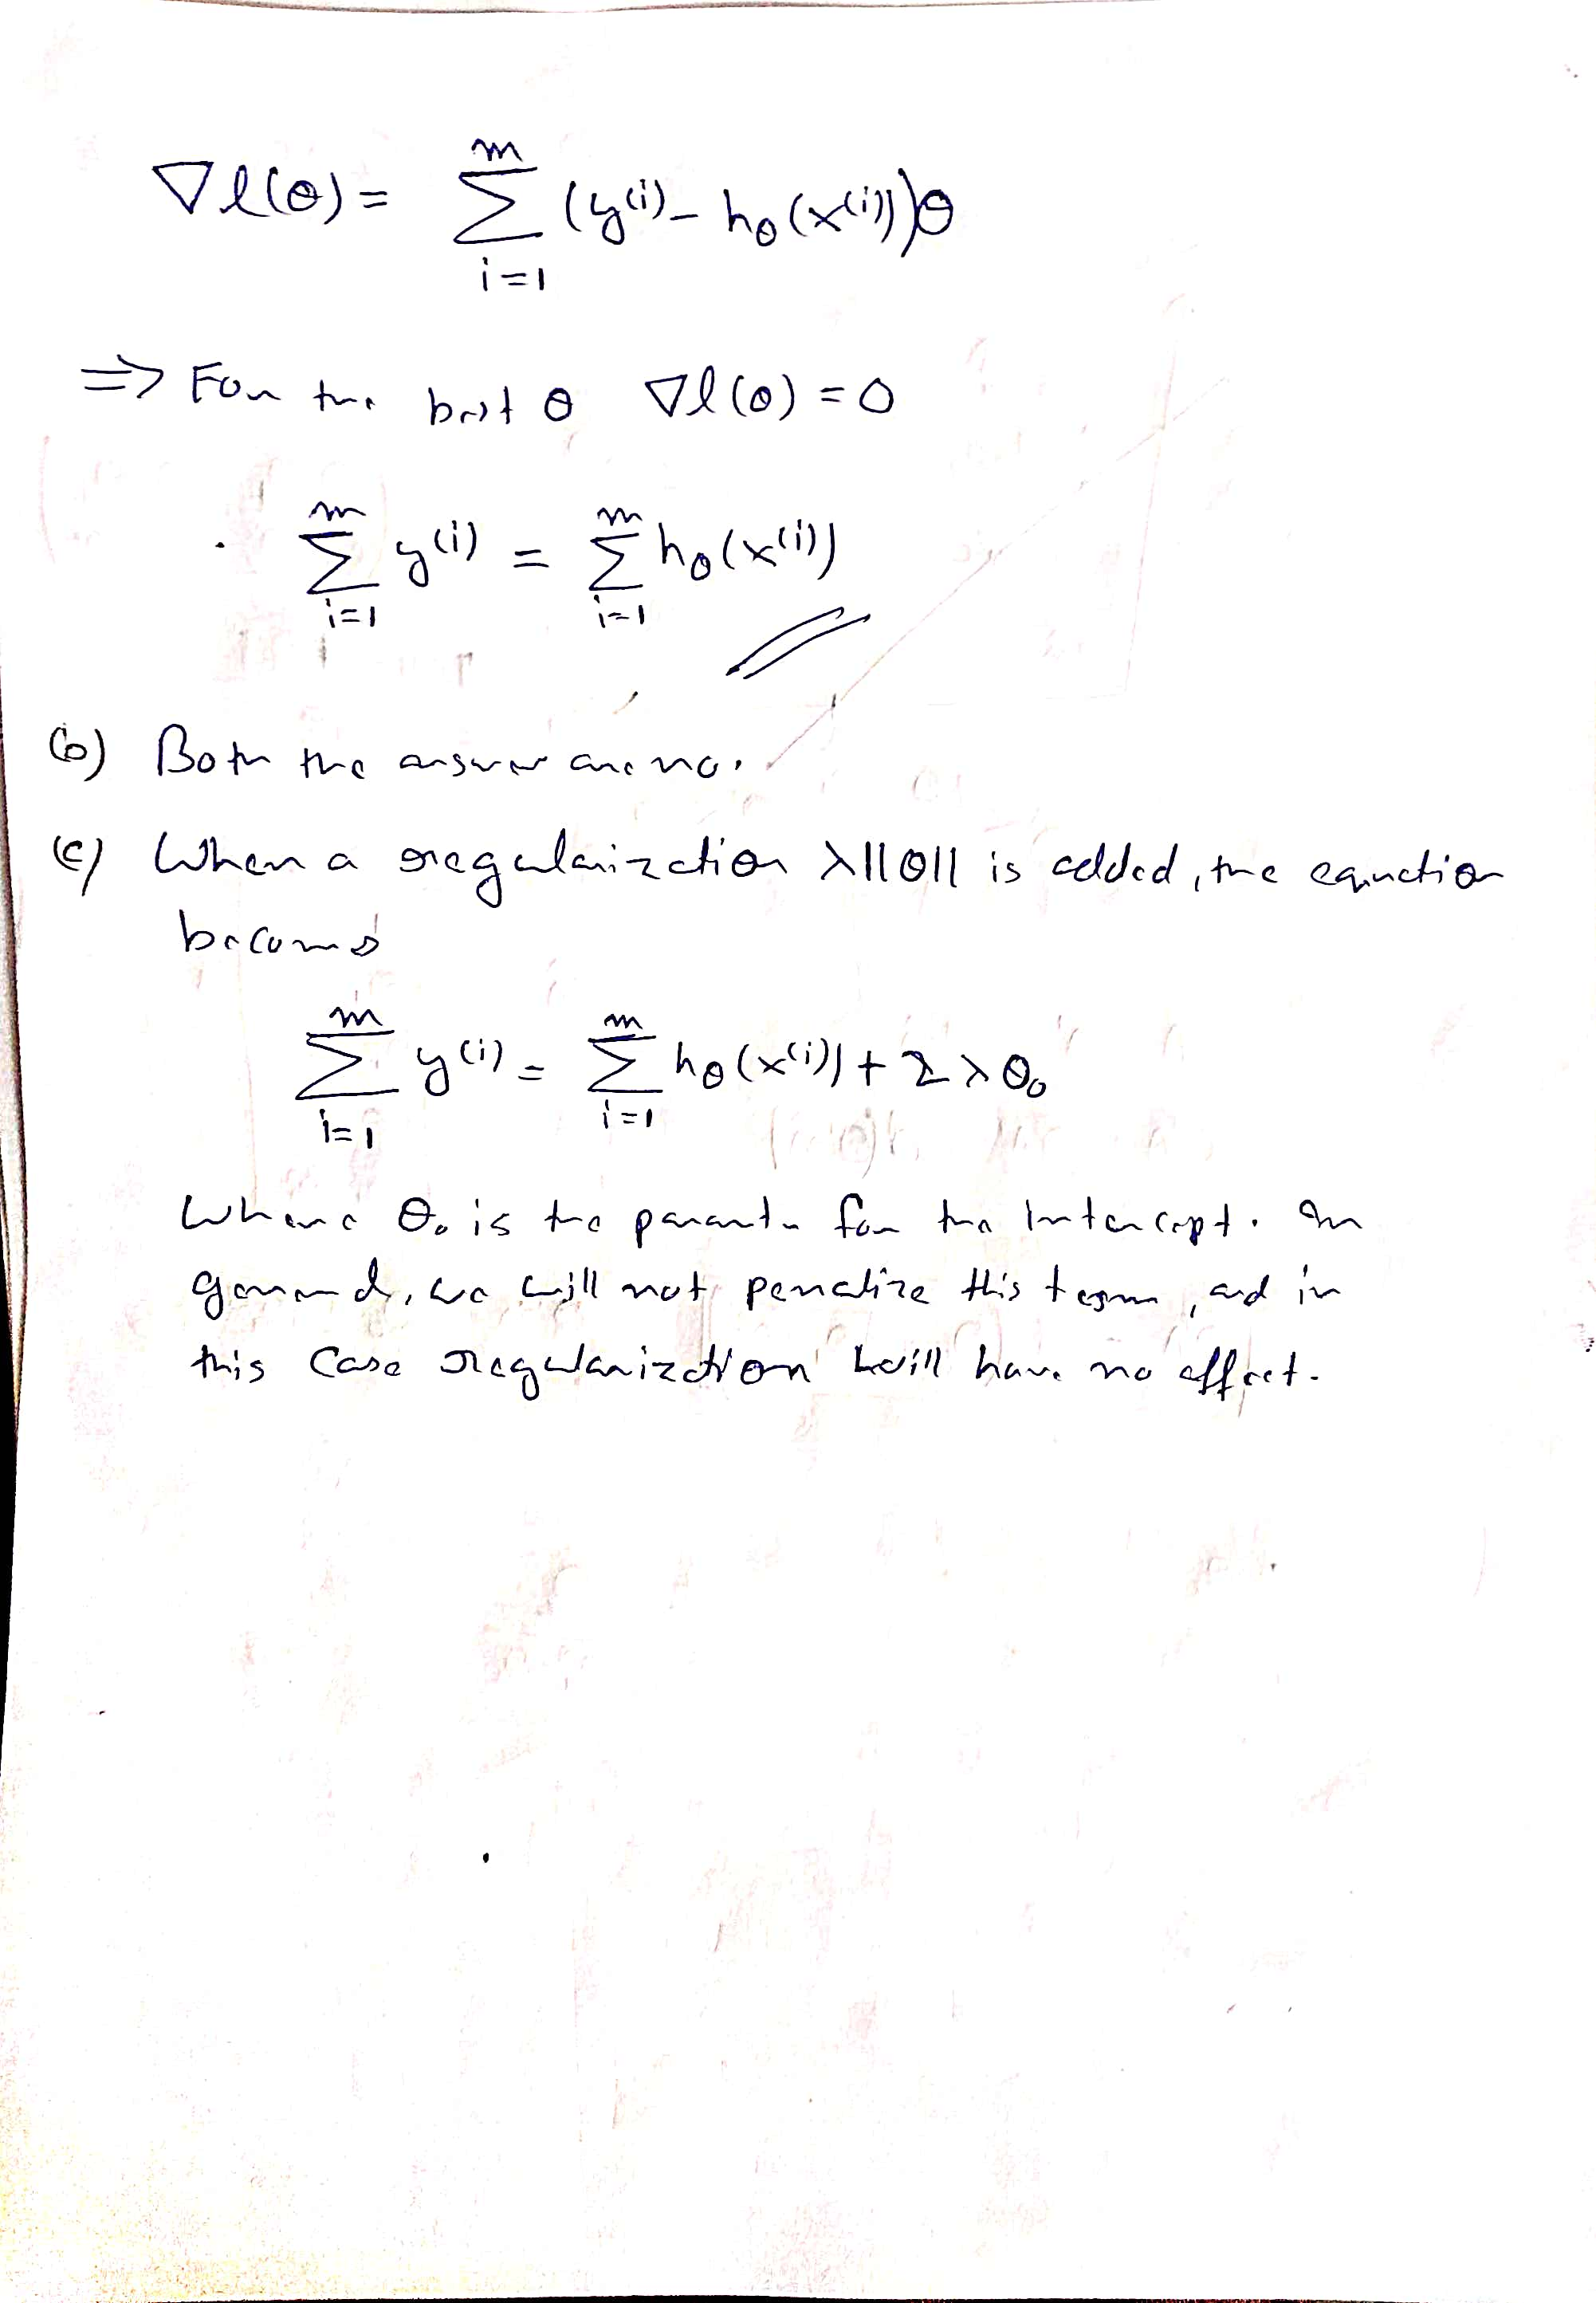 ∇l(θ) = Σ_{i=1}^{m} (y^{(i)} - h_θ(x^{(i)}))θ
=> For the best θ ∇l(θ) = 0
Σ_{i=1}^{m} y^{(i)} = Σ_{i=1}^{m} h_θ(x^{(i)})
(b) Both the answer are no.
(c) When a regularization λ||θ|| is added, the equation
becomes
Σ_{i=1}^{m} y^{(i)} = Σ_{i=1}^{m} h_θ(x^{(i)}) + 2λθ_0
where θ_0 is the for the Intercept. In
general, we will not penalize this term, and in
this case regularization will have no effect.